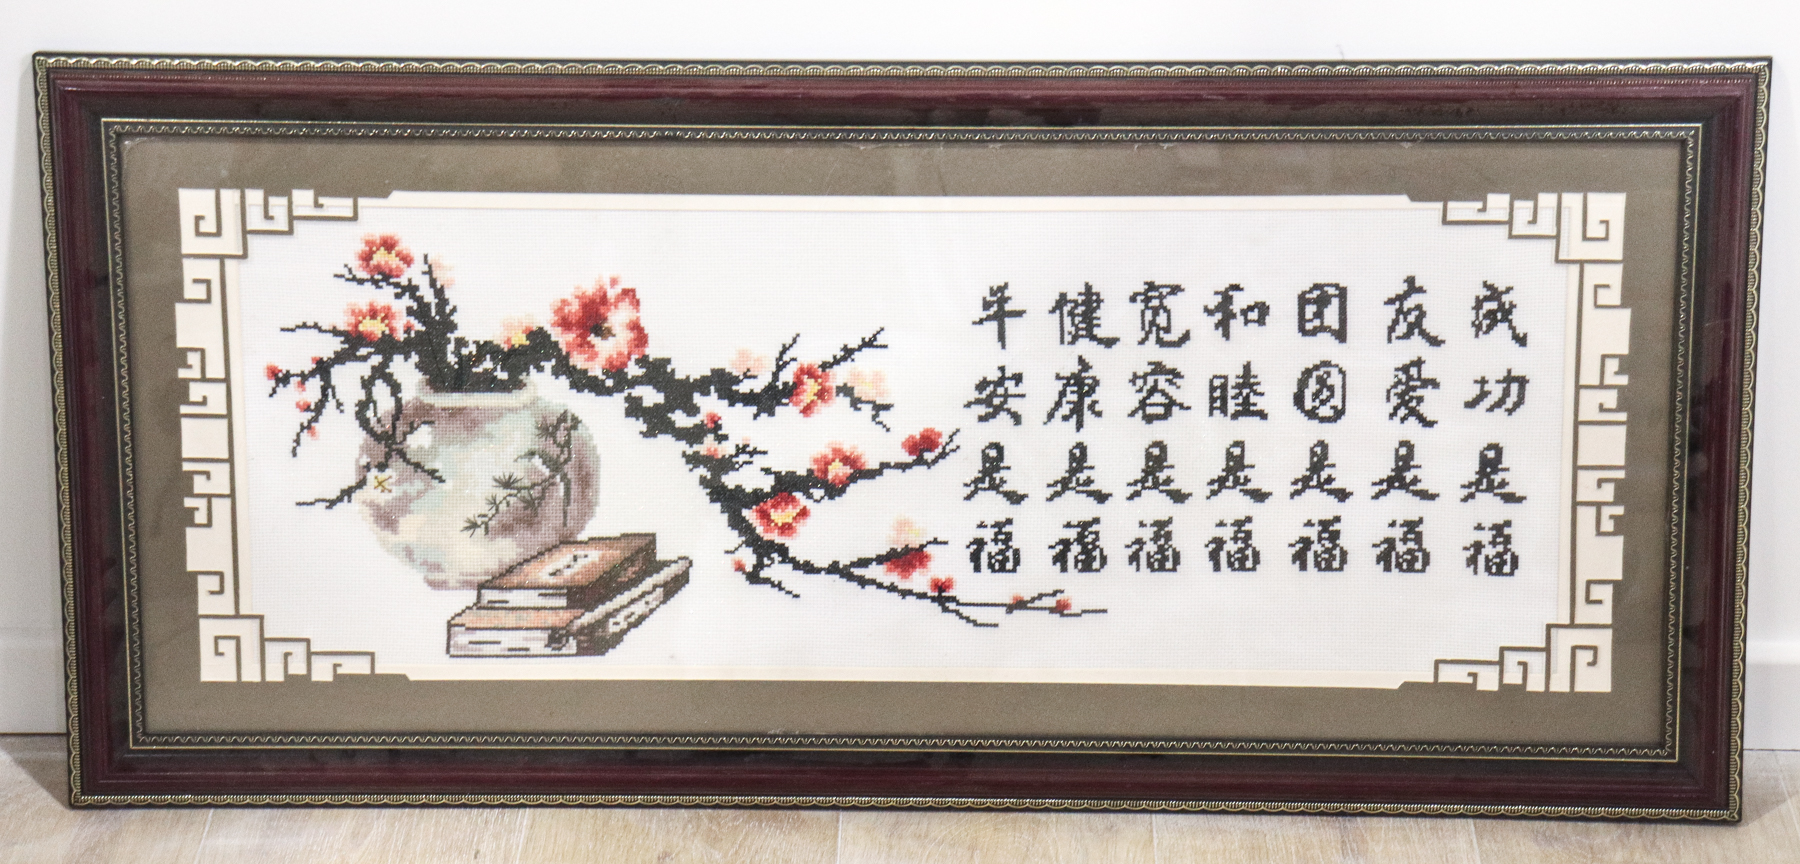 平安是福
健康是福
宽容是福
和睦是福
团圆是福
友爱是福
成功是福